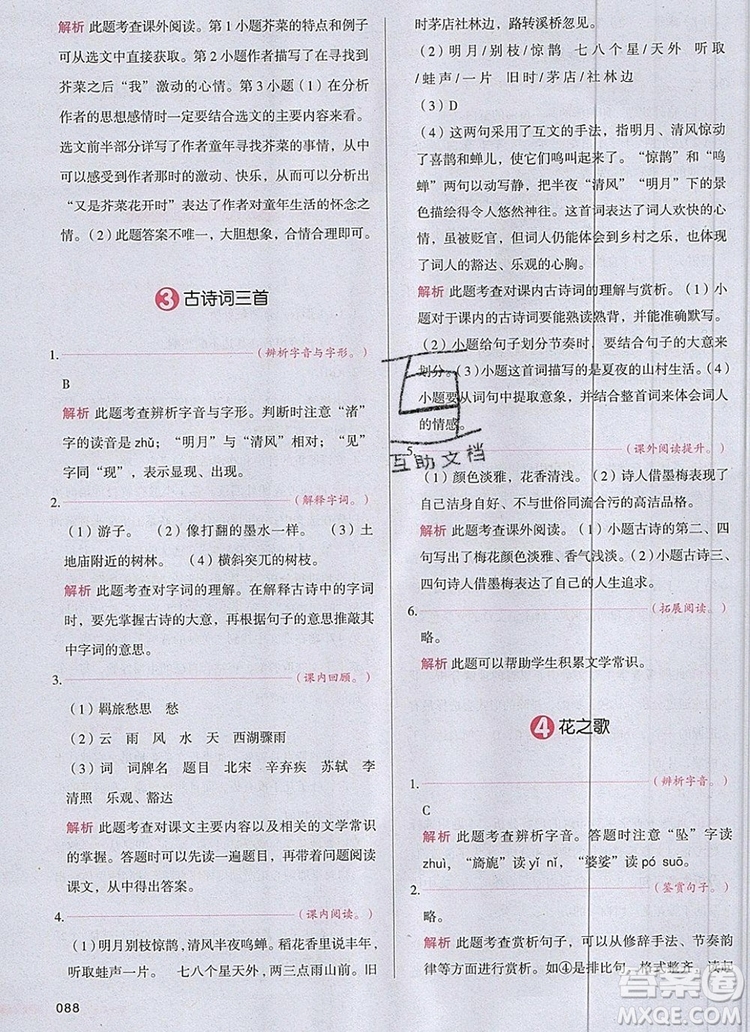 解析 此题考查课外阅读。第1小题芥菜的特点和例子
可以从选文中直接获取。第2小题作者描写了在寻找到
芥菜之后“我”激动的心情。第3小题（1）在分析
作者的思想感情时一定要结合选文的主要内容来看。
选文前半部分详写了作者童年寻找芥菜的事情，从而
体现了作者那时的激动、快乐，从这可以分析出
“又是芥菜花开时”表达了作者对童年生活的怀念之
情。（2）此题答案不唯一，大胆想象，合情合理即可。
3 古诗词三首
1.（辨析字音与字形。）
B
解析 此题考查辨析字音与字形。判断时注意“渚”
字的读音是zhǔ；“明月”与“清风”相对；“见”
字同“现”，意思是显示、出现。
2.（解释字词。）
（1）游子。（2）像打翻的墨水一样。（3）土
地庙附近的树林。（4）横斜突兀的树枝。
解析 此题考查对字词的理解。在解释古诗中的字词
时，要先掌握古诗的大意，再根据句子的意思推断其
中字词的意思。
3.（课内回顾。）
（1）羁旅愁思 愁
（2）云 雨 风 水 天 西湖骤雨
（3）词 词牌名 题目 北宋 辛弃疾 苏轼 李
清照 乐观、豁达
解析 此题考查对课文主要内容以及相关的文学常识
的掌握。答题时可以先读一遍题目，再带着问题阅读
课文，从中得出答案。
4.（课内阅读。）
（1）明月别枝惊鹊，清风半夜鸣蝉。稻花香里说丰年，
听取蛙声一片。 七八个星天外，两三点雨山前。旧
088
时茅店社林边，路转溪桥忽见。
（2）明月/别枝/惊鹊 七八个星/天外 听取
/蛙声/一片 旧时/茅店/社林边
（3）D
（4）这两句采用了互文的手法，指明月、清风惊动
了喜鹊和蝉儿，使它们鸣叫起来。“惊鹊”和“鸣
蝉”两句以动写静，把半夜“清风”“明月”下的景
色描绘得令人悠然神往。这首词词人欢快的心
情，虽被贬官，但心中仍充满了对乡村生活的乐观，
体现了词人的豁达、乐观的心胸。
解析 此题考查对课内古诗词的理解与赏析。（1）小
题对于课内的古诗词要能熟读熟背，并能准确默写。
（2）小题给句子划分节奏时，要根据句子的大意来
划分。（3）小题这首词描写的是夏夜的山村生活。（4）
小题要从词句中提取意象，并结合整首词来体会词人
的情感。
5（课外阅读提升。）
（1）颜色淡雅，花香清浅。（2）诗人借墨梅表现了
自己洁身自好、不与世俗同流合污的高洁品格。
解析 此题考查课外阅读。（1）小题古诗的第二、四
句写出了梅花颜色淡雅、香气浅淡。（2）小题古诗三、
四句诗人借墨梅表达了自己的人生追求。
6.（拓展阅读。）
略。
解析 此题可以帮助学生积累文学常识。
4 花之歌
1.（辨析字音。）
C
解析 此题考查辨析字音。答题时注意“坠”字读
zhuì，“旖旎”读yǐ nǐ，“婆娑”读pó suō。
2.（鉴赏句子。）
略。
解析 此题考查赏析句子，可以从修辞手法、节奏韵
律等方面进行赏析。如④是排比句，格式整齐、读起
互助文档
答案圈
MXQE.COM